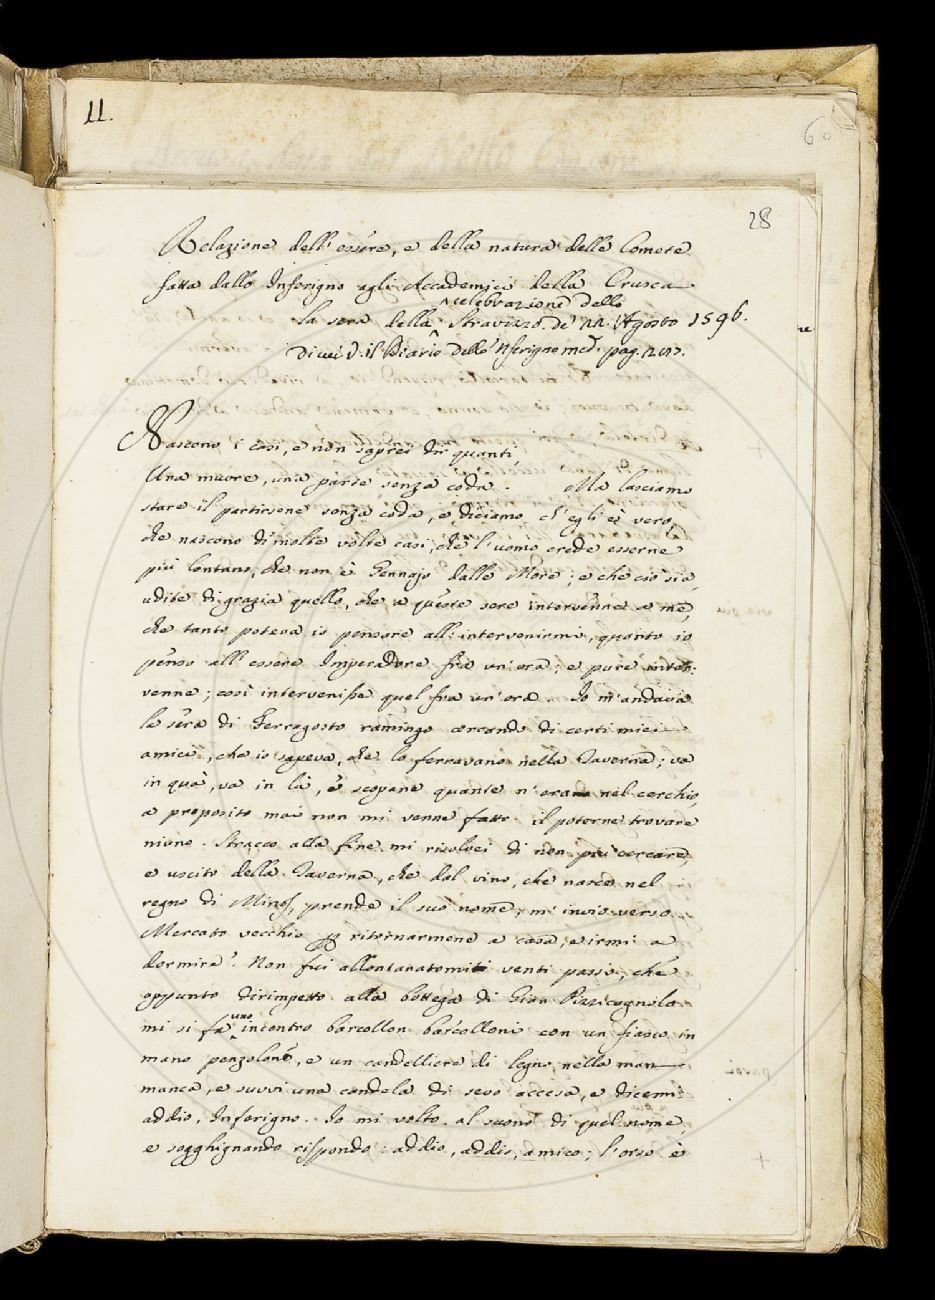 11.
60
28
Relazione dell'essere, e della natura delle Comete
fatta dallo Inferigno agli Accademici della Crusca
celebrazione dello
la sera della Stravizzo de' 22 Agosto 1596.
il Diario dello 'Nferigno med. pag.
Nascono i casi, e non saprei dir quanti
Una muore, una parte senza coda. Ma lasciamo
stare il partirsene senza coda, e diciamo ch'egli è vero,
che nascono di molte volte casi, che l'uomo crede esserne
più lontano, che non è Gennajo dalle More; e che ciò sia,
udite di grazia quello, che a queste sere intervenne a me,
che tanto poteva io pensare all'intervenirmi, quanto io
penso all'essere Imperadore fra un'ora; e pure inter-
venne; così intervenisse quel fra un'ora. Io m'andava
la sera di Ferragosto ramingo cercando di certi miei
amici, che io sapeva, che lo ferravano nella Taverna; va
in quà, va in là, e scopane quante n'era nel cerchio,
a proposito mai non mi venne fatto il poterne trovare
niuno. Stracco alla fine mi risolvei di non più cercare,
e uscito della Taverna, che dal vino, che nasce nel
regno di Minos, prende il suo nome, m'invio verso
Mercato vecchio per ritornarmene a casa, e irmi a
dormire. Non fui allontanatomiti venti passi, che
appunto dirimpetto alla bottega di Gian Pizzicagnolo
uno
mi si fa incontro barcollon barcolloni con un fiasco in
mano penzolone, e un candelliere di legno nella man
manca, e suvvi una candela di sevo accesa, e dicemi
addio, Inferigno. Io mi volto al suono di quel nome,
e sogghignando rispondo: addio, addio, amico; l'orso è